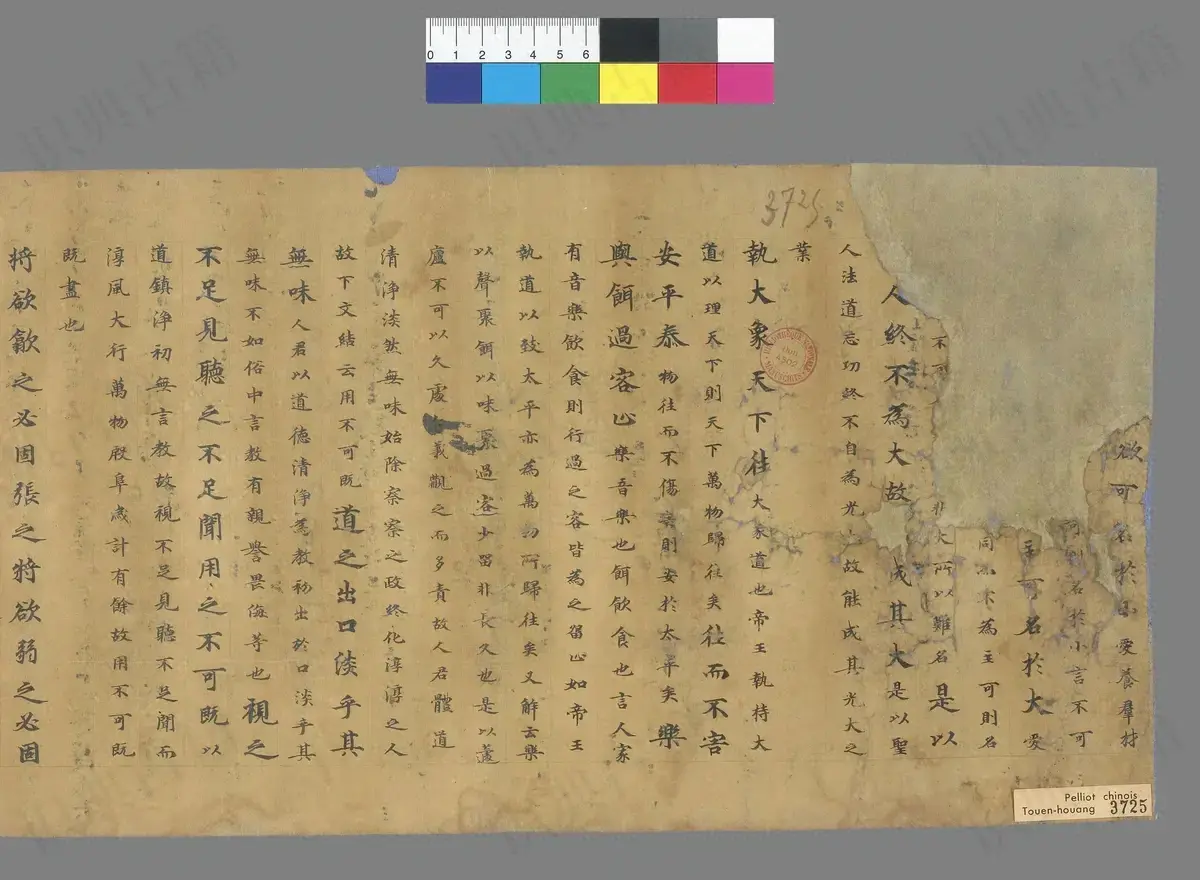 欲可名於小愛養羣材
名於小言不可
可名於大愛
同 不為主可則名
不可 非大所以難名是以
人終不為大故 成其大是以聖
人法道忘功終不自為光大故能成其光大之
業
執大象天下往大象道也帝王執持大
道以理天下則天下萬物歸往矣往而不害
安平泰物往而不傷害則安於太平矣樂
與餌過客止樂音樂也餌飲食也言人家
有音樂飲食則行過之客皆為之留止如帝王
執道以致太平亦為萬物所歸往矣又解云樂
以聲聚餌以味聚過客少留非長久也是以蘧
廬不可以久處 義觀之而多責故人君體道
清淨淡然無味始除察察之政終化淳淳之人
故下文結云用不可既道之出口淡乎其
無味人君以道德清淨為教初出於口淡乎其
無味不如俗中言教有親譽畏侮等也視之
不足見聽之不足聞用之不可既以
道鎮淨初無言教故視不足見聽不足聞而
淳風大行萬物殷阜歲計有餘故用不可既
既盡也
將欲歙之必固張之將欲弱之必固
3725
Pelliot chinois
Touen-houang 3725
0 1 2 3 4 5 6
识典古籍